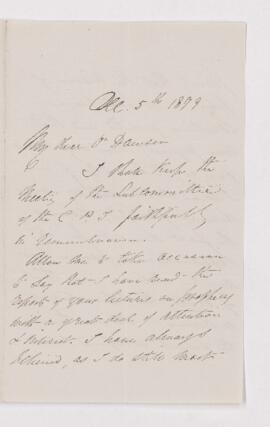 Dec. 5th 1899
My dear Dr Dawson
I shall keep the
Meeting of the Subcommittee
of the C P I faithfully
in remembrance.
Allow me to take occasion
to say that I have read the
report of your lectures on prophecy
with a great deal of attention
& interest. I have always
believed, as I do still most